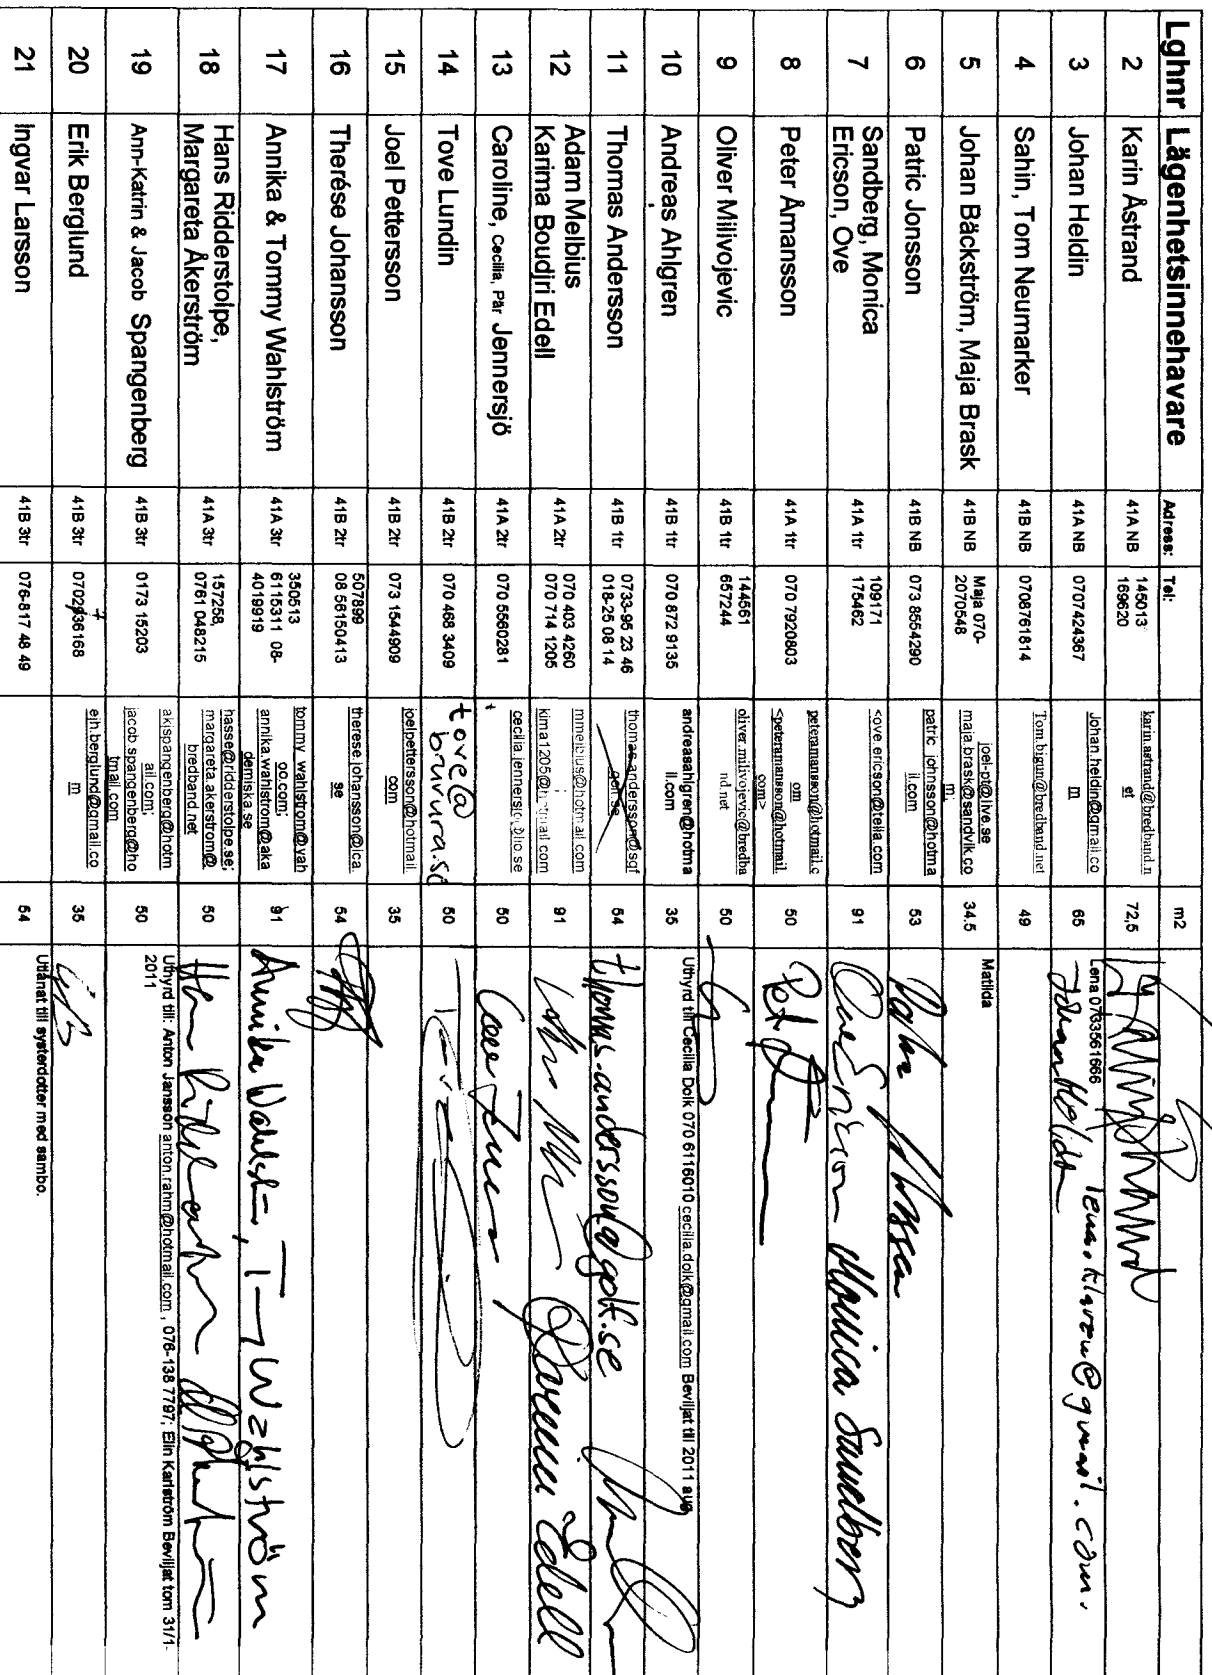 Lghnr Lägenhetsinnehavare Adress: Tel: m2
2 Karin Åstrand 41A NB 145013 169620 karin.astrand@bredband.net 72,5
3 Johan Heldin 41A NB 0707424367 Johan.heldin@gmail.com 65 Lena 0733561666 lena.klaren@gmail.com.
Johan Heldin
4 Sahin, Tom Neumarker 41B NB 0708761814 Tom.bigun@bredband.net 49
5 Johan Bäckström, Maja Brask 41B NB Maja 070-2070548 joel-pt@live.se maja.brask@sandvik.com; 34.5 Matilda
6 Patric Jonsson 41B NB 073 8554290 patric_johnsson@hotmail.com 53
7 Sandberg, Monica Ericson, Ove 41A 1tr 109171 175462 <ove.ericson@telia.com 91 Ove Ericson Monica Sandberg
8 Peter Åmansson 41A 1tr 070 7920803 peteramansson@hotmail.com <peteramansson@hotmail.com> 50
9 Oliver Milivojevic 41B 1tr 144561 657244 oliver.milivojevic@bredband.net 50
10 Andreas Ahlgren 41B 1tr 070 872 9135 andreasahlgren@hotmail.com 35 Uthyrd till Cecilia Dolk 070 6116010 cecilia.dolk@gmail.com Beviljat till 2011 aug
11 Thomas Andersson 41B 1tr 0733-95 23 46 018-25 08 14 thomas.andersson@sgf.golf.se 54 thomas.andersson@golf.se
12 Adam Melbius Karima Boudjri Edell 41A 2tr 070 403 4260 070 714 1205 mmelbius@hotmail.com kima1205@hotmail.com 91 Karima Edell
13 Caroline, Cecilia, Pär Jennersjö 41A 2tr 070 5560281 cecilia.jennersjo@lio.se 50
14 Tove Lundin 41B 2tr 070 468 3409 tove@brurura.se 50
15 Joel Pettersson 41B 2tr 073 1544909 joelpettersson@hotmail.com 35
16 Therése Johansson 41B 2tr 507899 08 56150413 therese.johansson@ica.se 54
17 Annika & Tommy Wahlström 41A 3tr 350513 6115311 08-4019919 tommy_wahlstrom@yahoo.com; annika.wahlstrom@akademiska.se 91 Annika Wahlst, T Wahlström
18 Hans Ridderstolpe, Margareta Åkerström 41A 3tr 157258, 0761 048215 hasse@ridderstolpe.se; margareta.akerstrom@bredband.net 50
19 Ann-Katrin & Jacob Spangenberg 41B 3tr 0173 15203 akispangenberg@hotmail.com; jacob.spangenberg@hotmail.com 50 Uthyrd till: Anton Jansson anton.rahm@hotmail.com , 076-138 7797; Elin Karlström Beviljat tom 31/1-2011
20 Erik Berglund 41B 3tr 0702736168 ejh.berglund@gmail.com 35
21 Ingvar Larsson 41B 3tr 076-817 48 49 54 Utlånat till systerdotter med sambo.